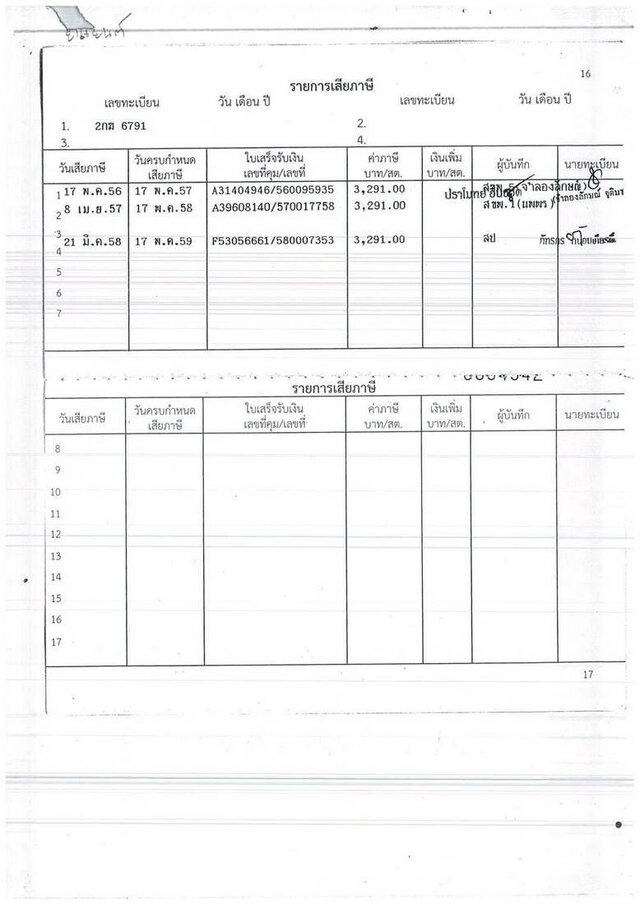 16
รายการเสียภาษี
เลขทะเบียน วัน เดือน ปี เลขทะเบียน วัน เดือน ปี
1. 2กฆ 6791 2.
3. 4.
วันเสียภาษี วันครบกำหนดเสียภาษี ใบเสร็จรับเงินเลขที่คุม/เลขที่ ค่าภาษีบาท/สต. เงินเพิ่มบาท/สต. ผู้บันทึก นายทะเบียน
1 17 พ.ค.56 17 พ.ค.57 A31404946/560095935 3,291.00
2 8 เม.ย.57 17 พ.ค.58 A39608140/570017758 3,291.00 สชพ.1(นพพร)
3
4 21 มี.ค.58 17 พ.ค.59 F53056661/580007353 3,291.00 สป
5
6
7
รายการเสียภาษี
วันเสียภาษี วันครบกำหนดเสียภาษี ใบเสร็จรับเงินเลขที่คุม/เลขที่ ค่าภาษีบาท/สต. เงินเพิ่มบาท/สต. ผู้บันทึก นายทะเบียน
8
9
10
11
12
13
14
15
16
17
17